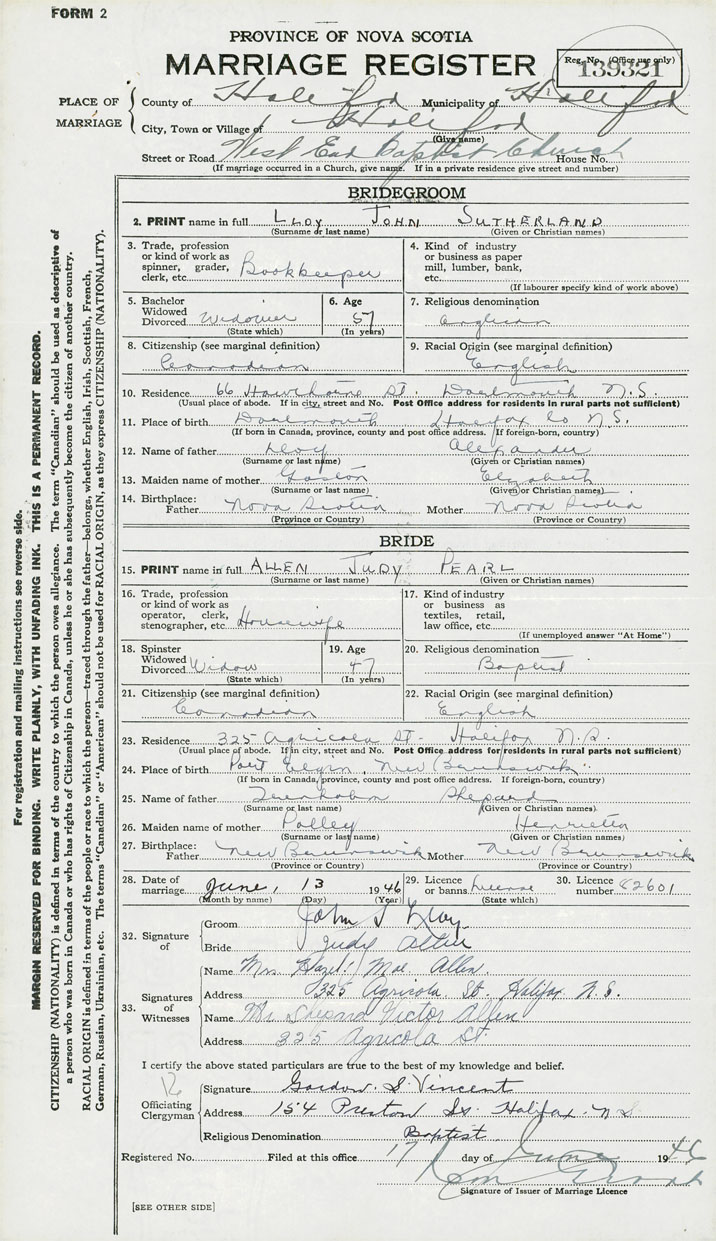 FORM 2
PROVINCE OF NOVA SCOTIA
MARRIAGE REGISTER
Reg. No. (Office use only)
139321
PLACE OF MARRIAGE
County of Halifax Municipality of Halifax
City, Town or Village of Halifax
(Give name)
Street or Road West End Baptist Church House No.
(If marriage occurred in a Church, give name. If in a private residence give street and number)
BRIDEGROOM
2. PRINT name in full LLOY JOHN SUTHERLAND
(Surname or last name) (Given or Christian names)
3. Trade, profession or kind of work as spinner, grader, clerk, etc. Bookkeeper
4. Kind of industry or business as paper mill, lumber, bank, etc.
(If labourer specify kind of work above)
5. Bachelor Widowed Divorced Widower
(State which)
6. Age 57
(In years)
7. Religious denomination Anglican
8. Citizenship (see marginal definition)
Canadian
9. Racial Origin (see marginal definition)
English
10. Residence 66 Hawthorne St. Dartmouth N.S.
(Usual place of abode. If in city, street and No. Post Office address for residents in rural parts not sufficient)
11. Place of birth Dartmouth Halifax Co N.S.
(If born in Canada, province, county and post office address. If foreign-born, country)
12. Name of father Lloy Alexander
(Surname or last name) (Given or Christian names)
13. Maiden name of mother Gaston Elizabeth
(Surname or last name) (Given or Christian names)
14. Birthplace: Father Nova Scotia Mother Nova Scotia
(Province or Country) (Province or Country)
BRIDE
15. PRINT name in full ALLEN JUDY PEARL
(Surname or last name) (Given or Christian names)
16. Trade, profession or kind of work as operator, clerk, stenographer, etc. Housewife
17. Kind of industry or business as textiles, retail, law office, etc.
(If unemployed answer "At Home")
18. Spinster Widowed Divorced Widow
(State which)
19. Age 47
(In years)
20. Religious denomination
Baptist
21. Citizenship (see marginal definition)
Canadian
22. Racial Origin (see marginal definition)
English
23. Residence 325 Agricola St. Halifax N.S.
(Usual place of abode. If in city, street and No. Post Office address for residents in rural parts not sufficient)
24. Place of birth Port Elgin, New Brunswick
(If born in Canada, province, county and post office address. If foreign-born, country)
25. Name of father Shepard
(Surname or last name) (Given or Christian names)
26. Maiden name of mother Polley Henrietta
(Surname or last name) (Given or Christian names)
27. Birthplace: Father New Brunswick Mother New Brunswick
(Province or Country) (Province or Country)
28. Date of marriage June, 13 1946
(Month by name) (Day) (Year)
29. Licence or banns License
(State which)
30. Licence number 82601
32. Signature of
Groom John S Lloy.
Bride Judy Allen
33. Signatures of Witnesses
Name Mrs Hazel Mae Allen.
Address 325 Agricola St. Halifax N.S.
Name Mr Victor Allen
Address 325 Agricola St.
I certify the above stated particulars are true to the best of my knowledge and belief.
Officiating Clergyman
Signature Gordon S. Vincent
Address 154 Preston St. Halifax. N S
Religious Denomination Baptist
Registered No. Filed at this office 17 day of June 1946
Signature of Issuer of Marriage Licence
[SEE OTHER SIDE]
For registration and mailing instructions see reverse side.
MARGIN RESERVED FOR BINDING. WRITE PLAINLY, WITH UNFADING INK. THIS IS A PERMANENT RECORD.
CITIZENSHIP (NATIONALITY) is defined in terms of the country to which the person owes allegiance. The term "Canadian" should be used as descriptive of
a person who was born in Canada or who has rights of Citizenship in Canada, unless he or she has subsequently become the citizen of another country.
RACIAL ORIGIN is defined in terms of the people or race to which the person—traced through the father—belongs, whether English, Irish, Scottish, French,
German, Russian, Ukrainian, etc. The terms "Canadian" or "American" should not be used for RACIAL ORIGIN, as they express CITIZENSHIP (NATIONALITY).